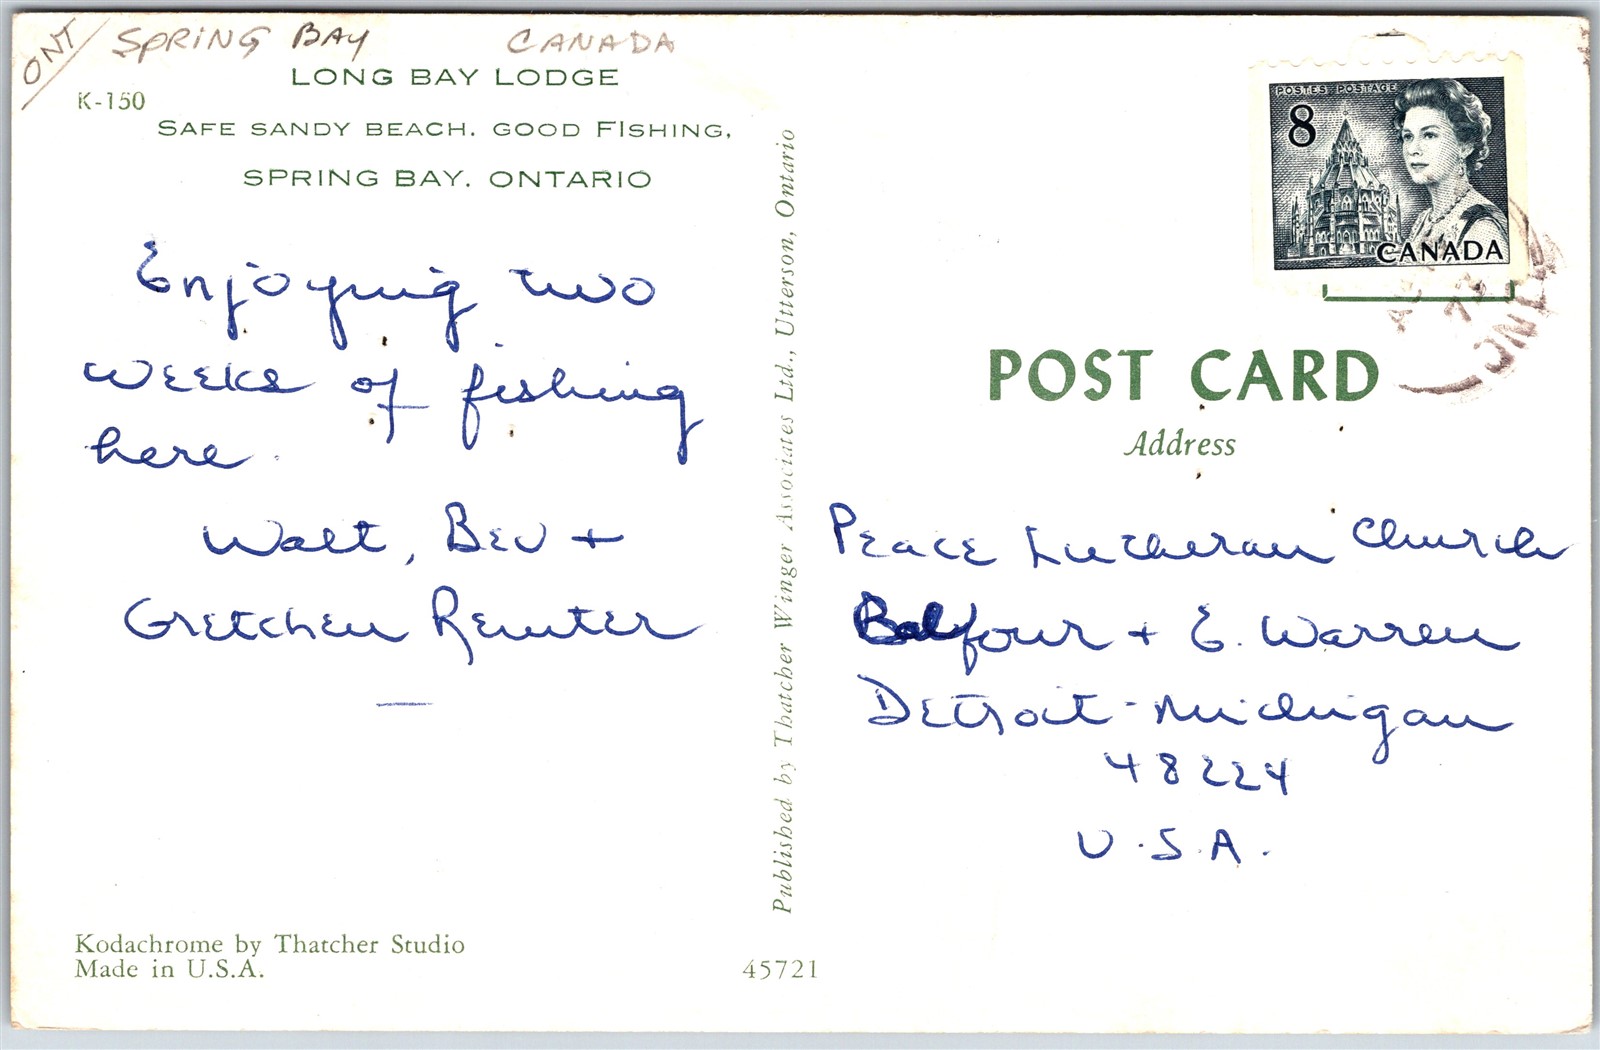 ONT/ SPRING BAY CANADA
LONG BAY LODGE
K-150
SAFE SANDY BEACH. GOOD FISHING,
SPRING BAY. ONTARIO
Enjoying two
weeks of fishing
here.
Walt, Bev +
Gretchen
Published by Thatcher Winger Associates Ltd., Utterson, Ontario
POSTES POSTAGE
8
CANADA
POST CARD
Address
Peace Lutheran Church
Balfour + E. Warren
Detroit - Michigan
48224
U.S.A.
Kodachrome by Thatcher Studio
Made in U.S.A.
45721